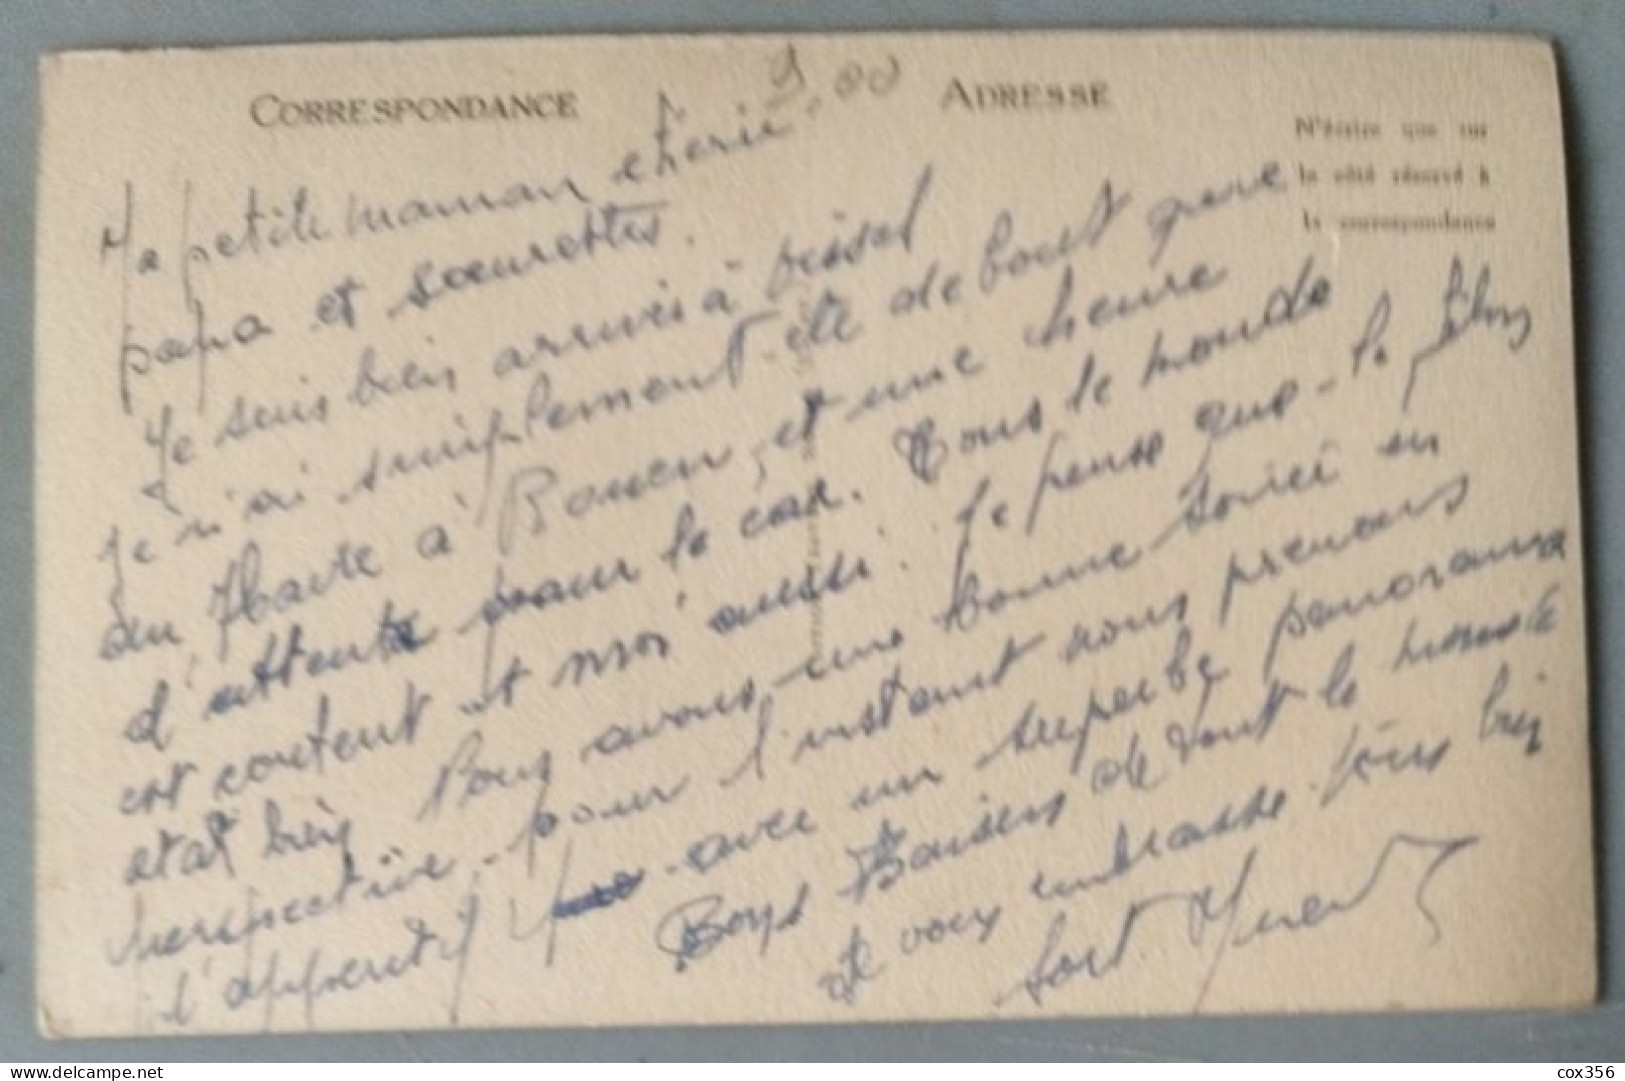 CORRESPONDANCE
ADRESSE
N'écrire que sur
le côté réservé à
la correspondance
9,00
Ma petite maman cherie
papa et sœurettes.
Je suis bien arrivés à
Je n'ai simplement été debout que
au Havre à Rouen, et une heure
d'attente pour le car. Tous le monde
est content et moi aussi. Je pense que le films
etat bien Nous avons une bonne soirée en
perspective. pour l'instant nous prenons
l'apperitif avec un superbe panorama
Bons Baisers de tout le monde
et vous embrasse tous bien
fort.
cox356